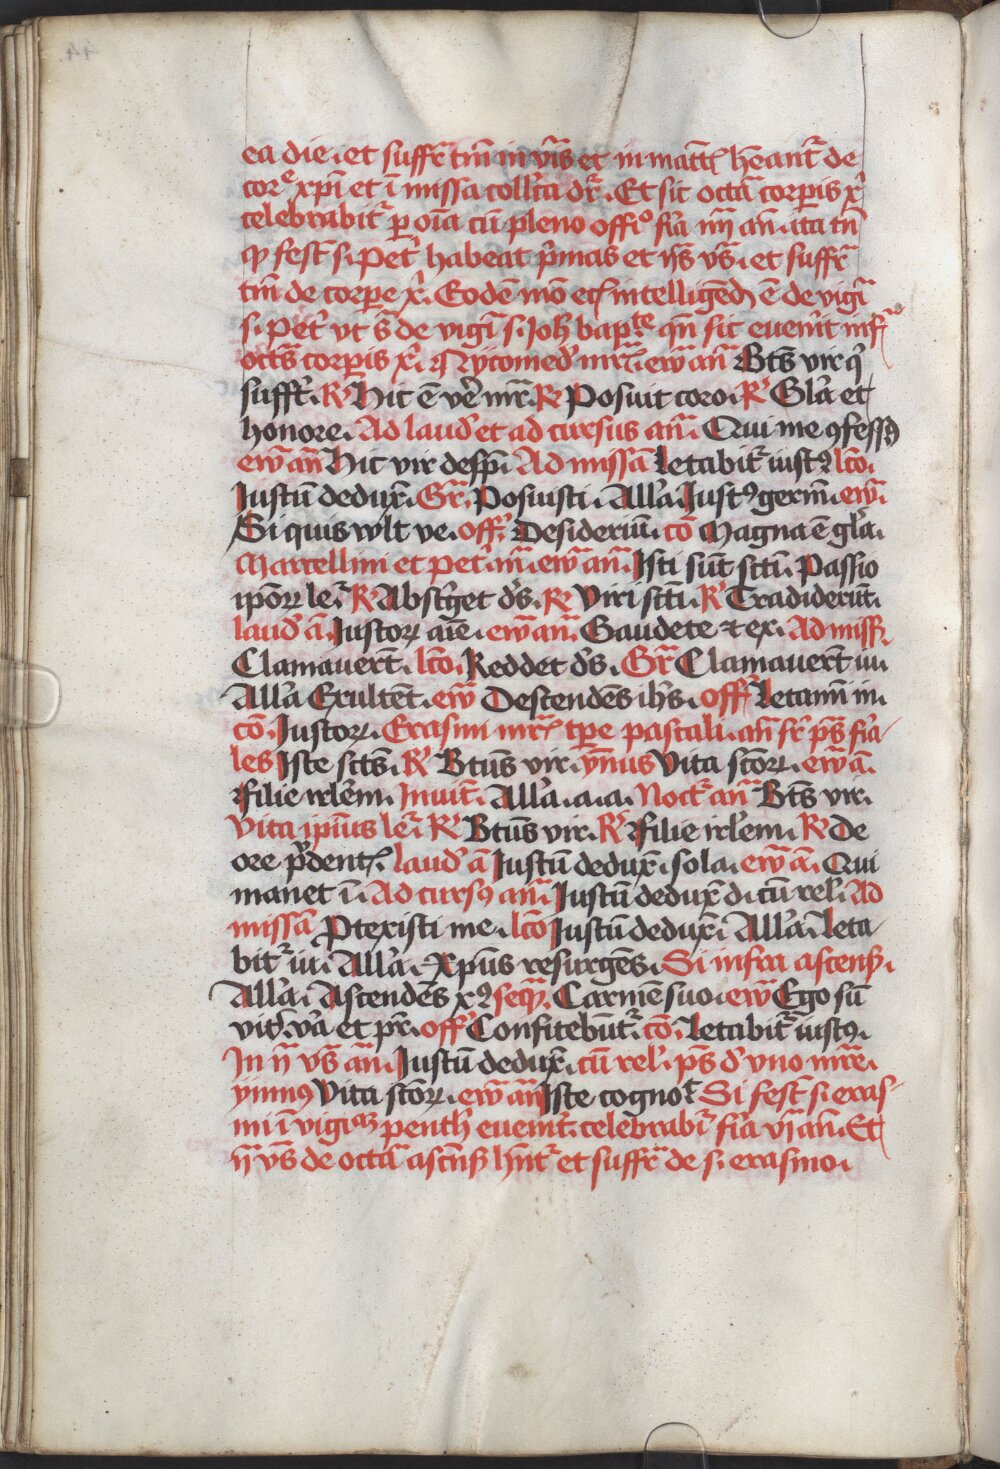 ea die. et suffr̄ tm̄ in vīs et in matt̄ hēant̄ de
corᵉ xpī et ī missa collc̄a dr̄. Et sic octā corpis x̄
celebrabit̄ p oīa cū pleno offº fīa iiij an̄. ita tn̄
qp fest s. Pet̄ habeat p̄mas et ijs vs̄. et suffr̄
tm̄ de corpe x̄. Eodē mō ecꝭ intelligēdꝫ ē de vigī
s. Pet̄ vt s̄ de vigī s. Joh̄ bapᵗᵉ qn̄ sic euen̄it inf̄
octās corpis x̄. Nycomed' mr̄. ew̄ an̄ Bt̄s vir q̄
suffr̄. R' Hic ē vē mr̄. R' Posuit coro. R' Gl̄a et
honore. Ad laud' et ad cursus an̄. Qui me ꝯfess⁹
ew̄ an̄ Hic vir desp̄. Ad missā Letabit̄ iust⁹ lc̄o.
Justū dedux̄. Gr̄. Posuisti. All'a. Just⁹ germ̄. ew̄.
Si quis wlt ve. off̄. Desideriū. cō Magna ē gl̄a.
Marcellini et pet̄. m̄. ew̄ an̄. Isti sūt sctī. Passio
ipōꝝ le. R' Abst̄get d's. R' Viri sctī. R' Tradiderūt.
laud' ā. Justoꝝ aīe. ew̄ an̄. Gaudete ⁊ ex. Ad miss̄.
Clamauert̄. lc̄o. Reddet d's. Gr̄ Clamauert̄ iu.
All'a Exultēt. ew̄ Descendēs ih's. off̄ Letamī in.
cō. Justoꝝ. Erasmi mr̄. tpe pascali. an̄ sr̄ ps̄ fīa
les Iste sct̄s. R' Btūs vir. ym̄us Vita scōꝝ. ew̄ ā.
Filie irl'em. Inuit̄. All'a. a. a. Noct̄ an̄ Bt̄s vir.
Vita ipīus le. R' Btūs vir. R' Filie irl'em. R' De
ore p̄dentꝭ. laud' ā Justū dedux̄. sola. ew̄ ā. Qui
manet ī. Ad curs⁹ an̄. Justū dedux̄ d. cū rel'. Ad
missā Ptexisti me. lc̄o Justū dedux̄. All'a. Leta
bit̄ iu. All'a. Xpūs resurgēs. Si infra ascens̄.
All'a. Ascendēs x⁹ seqꝫ. Carmē suo. ew̄ Ego sū
vit'. v'a et pr̄. off̄ Confitebūt̄. cō. Letabit̄ iust⁹.
In ij vs̄ an̄. Justū dedux̄. cū rel'. ps̄ d' vno mr̄e.
ymn⁹ Vita scōꝝ. ew̄ an̄ Iste cognoᵗ Si fest s. eras
mi ī vigᵃ penth̄ euen̄it. celebrab̄ fīa vj an̄. Et
ij vs̄ de octā ascēns̄ hn̄t̄ et suffr̄ de s. erasmo.